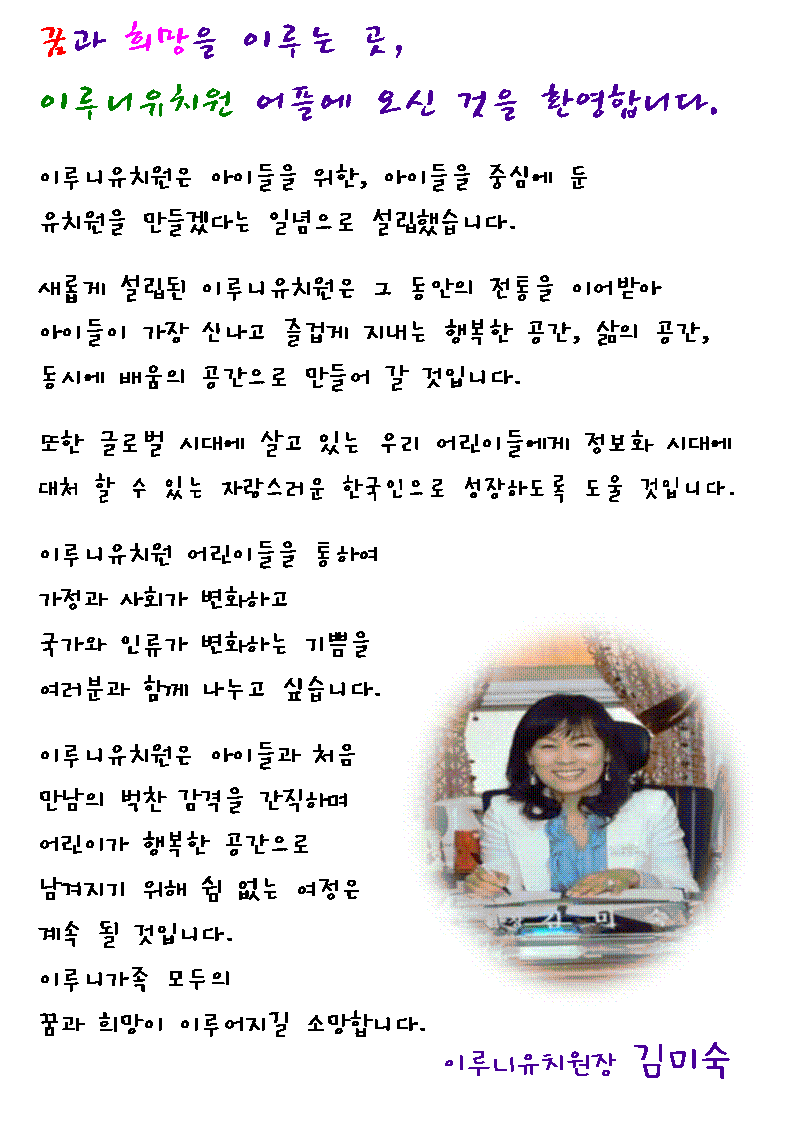 꿈과 희망을 이루는 곳,
이루니유치원 어플에 오신 것을 환영합니다.
이루니유치원은 아이들을 위한, 아이들을 중심에 둔
유치원을 만들겠다는 일념으로 설립했습니다.
새롭게 설립된 이루니유치원은 그 동안의 전통을 이어받아
아이들이 가장 신나고 즐겁게 지내는 행복한 공간, 삶의 공간,
동시에 배움의 공간으로 만들어 갈 것입니다.
또한 글로벌 시대에 살고 있는 우리 어린이들에게 정보화 시대에
대처 할 수 있는 자랑스러운 한국인으로 성장하도록 도울 것입니다.
이루니유치원 어린이들을 통하여
가정과 사회가 변화하고
국가와 인류가 변화하는 기쁨을
여러분과 함께 나누고 싶습니다.
이루니유치원은 아이들과 처음
만남의 벅찬 감격을 간직하며
어린이가 행복한 공간으로
남겨지기 위해 쉼 없는 여정은
계속 될 것입니다.
이루니가족 모두의
꿈과 희망이 이루어지길 소망합니다.
김미숙
이루니유치원장 김미숙